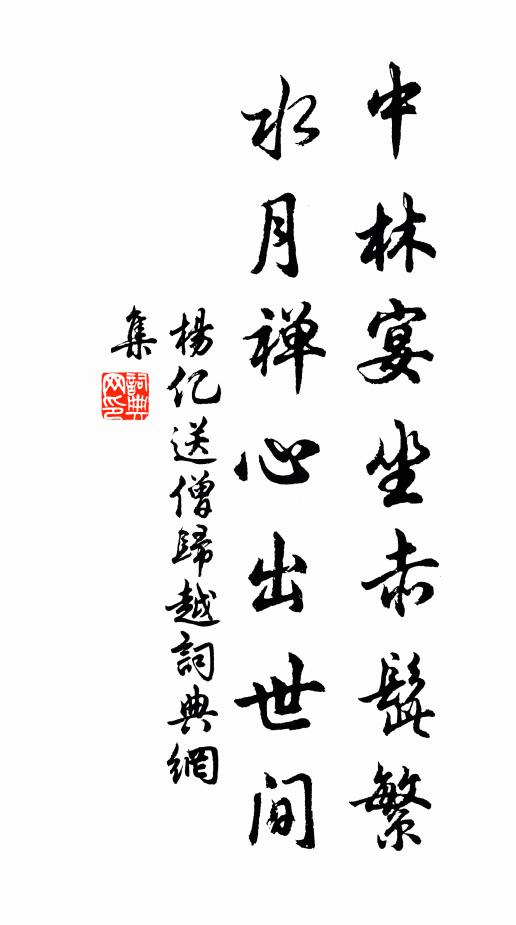 中林宴坐赤髭繁
水月禅心出世间
楊亿送僧歸越詞典網
集
詞典网印